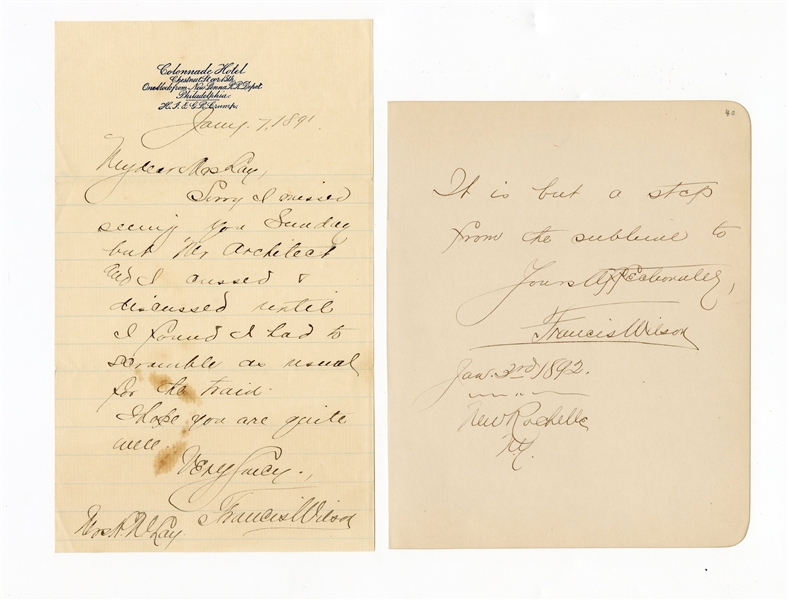 Colonnade Hotel
Chestnut St. cor. 15th
One block from New Penna R.R. Depot
Philadelphia
H. J. & G. R. Crump.
Jany. 7, 1891
My dear Mrs Lay,
Sorry I missed
seeing you Sunday
but Mr Architect
and I cussed &
discussed until
I found I had to
scramble as usual
for the train.
I hope you are quite
well.
Very Sincy.,
Francis Wilson
Mrs A. W Lay.
40
It is but a step
from the sublime to
Yours Affectionately,
Francis Wilson
Jan. 3rd 1892.
New Rochelle
NY.